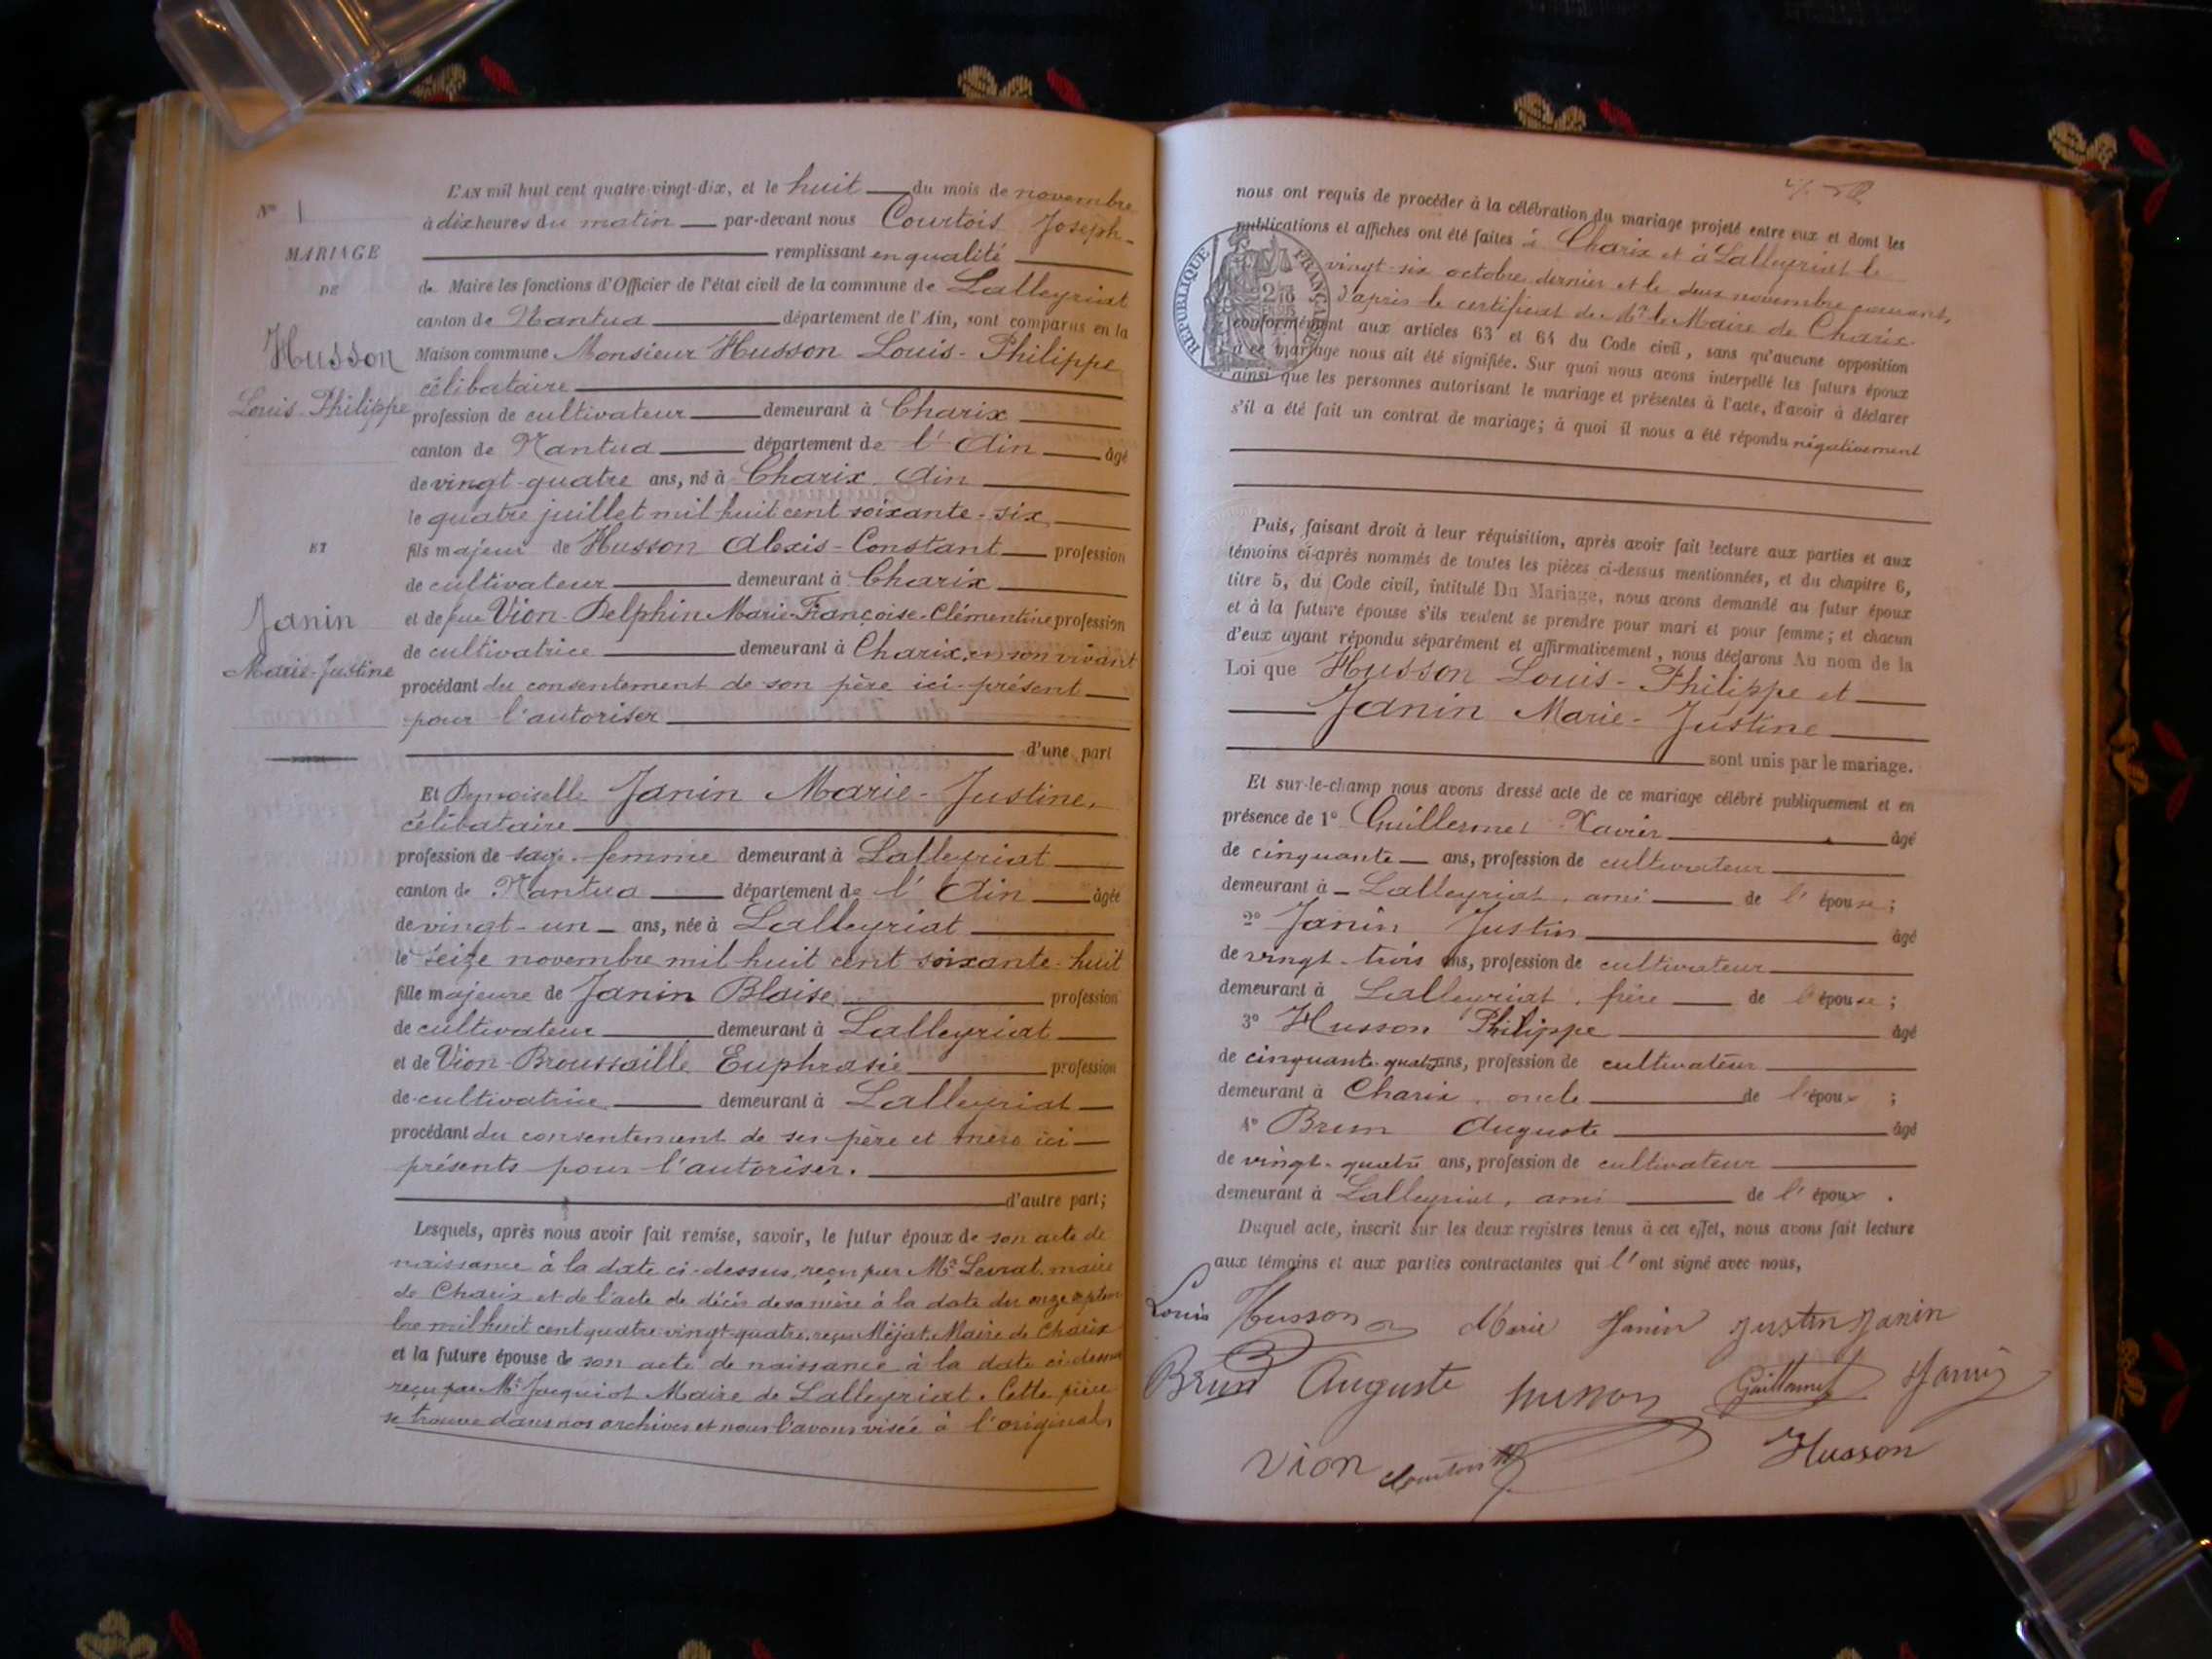 L'AN mil huit cent quatre-vingt-dix, et le huit du mois de novembre
à dix heures du matin par-devant nous Courtois Joseph-
remplissant en qualité
de Maire les fonctions d'Officier de l'état civil de la commune de Lalleyriat
canton de Nantua département de l'Ain, sont comparus en la
Maison commune Monsieur Husson Louis-Philippe
célibataire
profession de cultivateur demeurant à Charix
canton de Nantua département de l'Ain âgé
de vingt-quatre ans, né à Charix, Ain
le quatre juillet mil huit cent soixante-six,
fils majeur de Husson Alexis-Constant profession
de cultivateur demeurant à Charix
et de feue Vion-Delphin Marie-Françoise-Clémentine profession
de cultivatrice demeurant à Charix, en son vivant
procédant du consentement de son père ici-présent
pour l'autoriser
d'une part
Et Demoiselle Janin Marie-Justine,
célibataire
profession de sage-femme demeurant à Lalleyriat
canton de Nantua département de l'Ain âgée
de vingt-un ans, née à Lalleyriat
le seize novembre mil huit cent soixante-huit
fille majeure de Janin Blaise profession
de cultivateur demeurant à Lalleyriat
et de Vion-Broussaille Euphrasie profession
de cultivatrice demeurant à Lalleyriat
procédant du consentement de ses père et mère ici
présents pour l'autoriser.
d'autre part;
Lesquels, après nous avoir fait remise, savoir, le futur époux de son acte de
naissance à la date ci-dessus, reçu par Mr Levrat, maire
de Charix et de l'acte de décès de sa mère à la date du onze septem
bre mil huit cent quatre-vingt-quatre, reçu Méjat, Maire de Charix
et la future épouse de son acte de naissance à la date ci-dessus
reçu par Mr Jacquiot Maire de Lalleyriat. Cette pièce
se trouve dans nos archives et nous l'avons visée à l'original,
No 1
MARIAGE
DE
Husson
Louis-Philippe
ET
Janin
Marie-Justine
nous ont requis de procéder à la célébration du mariage projeté entre eux et dont les
publications et affiches ont été faites à Charix et à Lalleyriat le
vingt-six octobre dernier et le deux novembre courant,
d'après le certificat de Mr le Maire de Charix
conformément aux articles 63 et 64 du Code civil, sans qu'aucune opposition
à ce mariage nous ait été signifiée. Sur quoi nous avons interpellé les futurs époux
ainsi que les personnes autorisant le mariage et présentes à l'acte, d'avoir à déclarer
s'il a été fait un contrat de mariage; à quoi il nous a été répondu négativement
RÉPUBLIQUE FRANÇAISE
Puis, faisant droit à leur réquisition, après avoir fait lecture aux parties et aux
témoins ci-après nommés de toutes les pièces ci-dessus mentionnées, et du chapitre 6,
titre 5, du Code civil, intitulé Du Mariage, nous avons demandé au futur époux
et à la future épouse s'ils veulent se prendre pour mari et pour femme; et chacun
d'eux ayant répondu séparément et affirmativement, nous déclarons Au nom de la
Loi que Husson Louis-Philippe et
Janin Marie-Justine
sont unis par le mariage.
Et sur-le-champ nous avons dressé acte de ce mariage célébré publiquement et en
présence de 1o Guillermet Xavier âgé
de cinquante ans, profession de cultivateur
demeurant à Lalleyriat, ami de l'épouse;
2o Janin Justin âgé
de vingt-trois ans, profession de cultivateur
demeurant à Lalleyriat, frère de l'épouse;
3o Husson Philippe âgé
de cinquante-quatre ans, profession de cultivateur
demeurant à Charix, oncle de l'époux;
4o Brun Auguste âgé
de vingt-quatre ans, profession de cultivateur
demeurant à Lalleyriat, ami de l'époux.
Duquel acte, inscrit sur les deux registres tenus à cet effet, nous avons fait lecture
aux témoins et aux parties contractantes qui l'ont signé avec nous,
Louis Husson Marie Janin Justin Janin
Brun Auguste Husson Guillermet Janin
Vion Courtois Husson